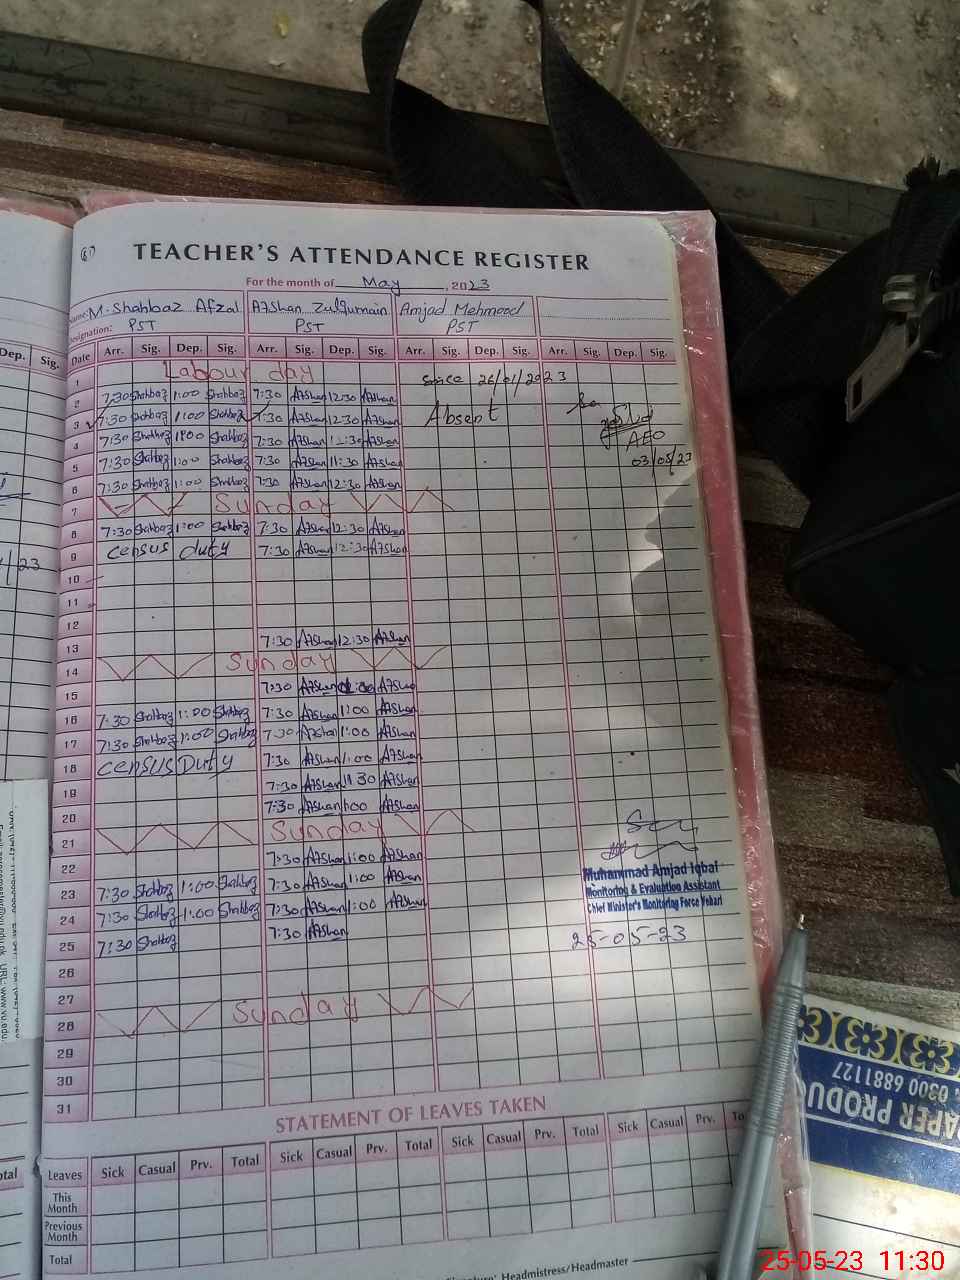 TEACHER'S ATTENDANCE REGISTER
For the month of May, 2023
Name: M. Shahbaz Afzal Afshan Zulqurnain Amjad Mehmood
Designation: PST PST PST
Dep. Sig. Date Arr. Sig. Dep. Sig. Arr. Sig. Dep. Sig. Arr. Sig. Dep. Sig. Arr. Sig. Dep. Sig.
1 Labour day
Since 26/01/2023
2 7:30 Shahbaz 1:00 Shahbaz 7:30 Afshan 12:30 Afshan
3 7:30 Shahbaz 1:00 Shahbaz 7:30 Afshan 12:30 Afshan Absent
4 7:30 Shahbaz 1:00 Shahbaz 7:30 Afshan 12:30 Afshan
AEO
5 7:30 Shahbaz 1:00 Shahbaz 7:30 Afshan 11:30 Afshan
03/05/23
6 7:30 Shahbaz 1:00 Shahbaz 7:30 Afshan 12:30 Afshan
7 Sunday
8 7:30 Shahbaz 1:00 Shahbaz 7:30 Afshan 12:30 Afshan
9 Census duty 7:30 Afshan 12:30 Afshan
10
11
12
13 7:30 Afshan 12:30 Afshan
14 Sunday
15 7:30 Afshan Afshan
16 7:30 Shahbaz 1:00 Shahbaz 7:30 Afshan 1:00 Afshan
17 7:30 Shahbaz 1:00 Shahbaz 7:30 Afshan 1:00 Afshan
18 Census Duty 7:30 Afshan 1:00 Afshan
19 7:30 Afshan 11:30 Afshan
20 7:30 Afshan 1:00 Afshan
21 Sunday
22 7:30 Afshan 1:00 Afshan
23 7:30 Shahbaz 1:00 Shahbaz 7:30 Afshan 1:00 Afshan
24 7:30 Shahbaz 1:00 Shahbaz 7:30 Afshan 1:00 Afshan
25 7:30 Shahbaz 7:30 Afshan
Muhammad Amjad Iqbal
Monitoring & Evaluation Assistant
Chief Minister's Monitoring Force Vehari
25-05-23
26
27
28 Sunday
29
30
31
STATEMENT OF LEAVES TAKEN
Leaves Sick Casual Prv. Total Sick Casual Prv. Total Sick Casual Prv. Total Sick Casual Prv.
This Month
Previous Month
Total
Headmistress/Headmaster
PAPER PRODU
0300 6881127
25-05-23 11:30